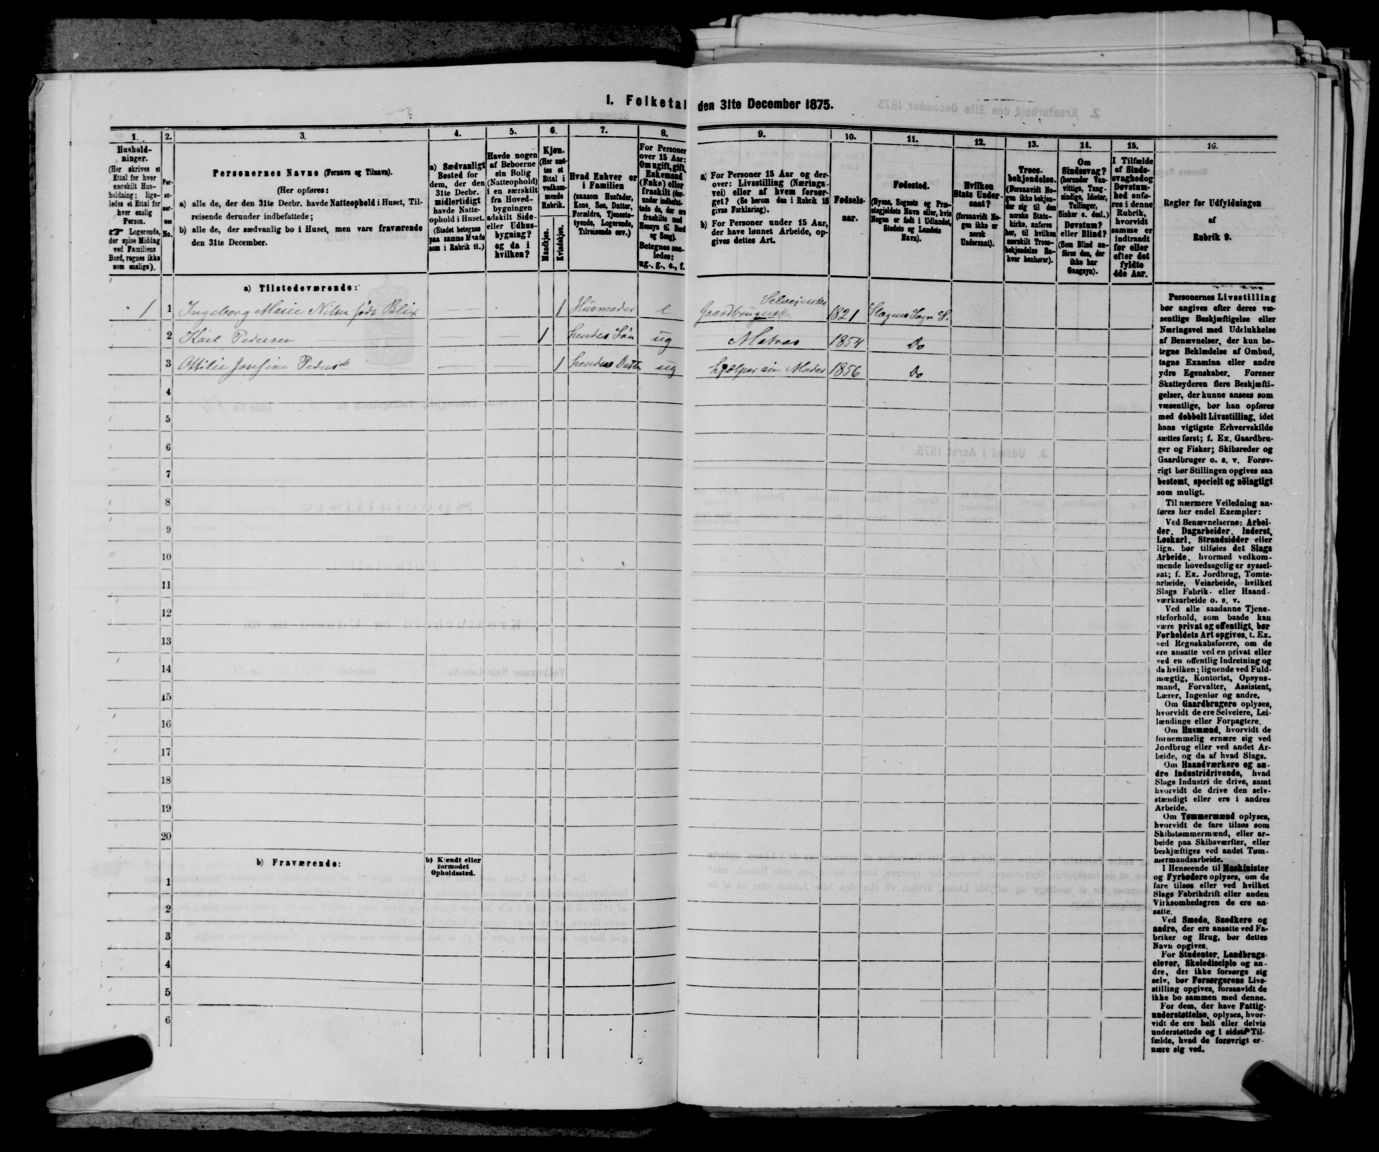 I. Folketal den 31te December 1875.
1. 2. 3. 4. 5. 6. 7. 8. 9. 10. 11. 12. 13. 14. 15. 16.
Hushold-
ninger.
(Her skrives et
Ettal for hver
særskilt Hus-
holdning; lige-
ledes et Ettal for
hver enslig
Person.
☞ Logerende,
der spise Middag
ved Familiens
Bord, regnes ikke
som enslige).
Per-
soner-
nes
No.
Personernes Navne (Fornavn og Tilnavn).
(Her opføres:
a) alle de, der den 31te Decbr. havde Natteophold i Huset, Til-
reisende derunder indbefattede;
b) alle de, der sædvanlig bo i Huset, men vare fraværende
den 31te December.
a) Sædvanligt
Bosted for
dem, der den
31te Decbr.
midlertidigt
havde Natte-
ophold i Huset.
(Stedet betegnes
paa samme Maade
som i Rubrik 11.)
Havde nogen
af Beboerne
sin Bolig
(Natteophold)
i en særskilt
fra Hoved-
bygningen
adskilt Side-
eller Udhus-
bygning?
og da i
hvilken?
Kjøn.
(Her sæt-
tes et
Ettal i
vedkom-
mende
Rubrik.
Mandkjøn.
Kvindekjøn.
Hvad Enhver er
i Familien
(saasom Husfader,
Kone, Søn, Datter,
Forældre, Tjeneste-
tyende, Logerende,
Tilreisende osv.)
For Personer
over 15 Aar:
Om ugift, gift,
Enkemand
(Enke) eller
fraskilt
Betegnes saa-
ledes:
ug., g., e., f.
a) For Personer 15 Aar og der-
over: Livsstilling (Nærings-
vei) eller af hvem forsør-
get? (Se herom den i Rubrik 16
givne Forklaring).
b) For Personer under 15 Aar,
der have lønnet Arbeide, op-
gives dettes Art.
Fødsels-
aar.
Fødested.
(Byens, Sognets og Præ-
stegjeldets Navn eller, hvis
Nogen er født i Udlandet,
Stedets og Landets
Navn).
Hvilken
Stats Under-
saat?
(forsaavidt No-
gen ikke er
norsk
Undersaat).
Troes-
bekjendelse.
(Forsaavidt No-
gen ikke bekjen-
der sig til den
norske Stats-
kirke, anføres
her, til hvilken
særskilt Troes-
bekjendelse En-
hver henhører).
Om
Sindssvag?
(herunder Van-
vittige, Tung-
sindige, Idioter,
Tullinger,
Sinker o. desl.)
Døvstum?
eller Blind?
(Som Blind an-
føres den, der
ikke har
Gangsyn).
I Tilfælde
af Sinds-
svaghed og
Døvstum-
hed anfø-
res i denne
Rubrik,
hvorvidt
samme er
indtraadt
før eller
efter det
fyldte
4de Aar.
Regler for Udfyldningen
af
Rubrik 9.
a) Tilstedeværende:
1 1 Ingeborg Marie Nilsen født Blix 1 Husmoder e Gaardbrugerske Selveierske 1821 Slagens Sogn S.
2 Karl Pedersen 1 hendes Søn ug Matros 1854 Do
3 Ottilie Josefine Pedersen 1 hendes Datter ug hjælper sin Moder 1856 Do
4
5
6
7
8
9
10
11
12
13
14
15
16
17
18
19
20
b) Fraværende:
b) Kjendt eller
formodet
Opholdssted.
1
2
3
4
5
6
Personernes Livsstilling
bør angives efter deres væ-
sentlige Beskjæftigelse eller
Næringsvei med Udelukkelse
af Benævnelser, der kun be-
tegne Beklædelse af Ombud,
tagne Examina eller andre
ydre Egenskaber. Forener
Skatteyderen flere Beskjæfti-
gelser, der kunne ansees som
væsentlige, bør han opføres
med dobbelt Livsstilling, idet
hans vigtigste Erhvervskilde
sættes først; f. Ex. Gaardbru-
ger og Fisker; Skibsreder og
Gaardbruger o. s. v. Forøv-
rigt bør Stillingen opgives saa
bestemt, specielt og nöiagtigt
som muligt.
Til nærmere Veiledning an-
føres her endel Exempler:
Ved Benævnelserne: Arbei-
der, Dagarbeider, Inderst,
Løskarl, Strandsidder eller
lign. bør tilføies det Slags
Arbeide, hvormed vedkom-
mende hovedsagelig er syssel-
sat; f. Ex. Jordbrug, Tomte-
arbeide, Veiarbeide, hvilket
Slags Fabrik- eller Haand-
værksarbeide o. s. v.
Ved alle saadanne Tjene-
steforhold, som baade kan
være privat og offentligt, bør
Forholdets Art opgives, t. Ex.
ved Regnskabsførere, om de
ere ansatte ved en privat eller
ved en offentlig Indretning og
da hvilken; lignende ved Fuld-
mægtig, Kontorist, Opsyns-
mand, Forvalter, Assistent,
Lærer, Ingeniør og andre.
Om Gaardbrugere oplyses,
hvorvidt de ere Selveiere, Lei-
lændinge eller Forpagtere.
Om Husmænd, hvorvidt de
fornemmelig ernære sig ved
Jordbrug eller ved andet Ar-
beide, og da af hvad Slags.
Om Haandværkere og an-
dre Industridrivende, hvad
Slags Industri de drive, samt
hvorvidt de drive den selv-
stændigt eller ere i andres
Arbeide.
Om Tømmermænd oplyses,
hvorvidt de fare tilsøs som
Skibstømmermænd, eller ar-
beide paa Skibsværfter, eller
beskjæftiges ved andet Tøm-
mermandsarbeide.
I Henseende til Maskinister
og Fyrbødere oplyses, om de
fare tilsøs eller ved hvilket
Slags Fabrikdrift eller anden
Virksomhedsgren de ere an-
satte.
Ved Smede, Snedkere og
andre, der ere ansatte ved Fa-
briker og Brug, bør dettes
Navn opgives.
For Studenter, Landbrugs-
elever, Skoledisciple og an-
dre, der ikke forsørge sig
selv, bør Forsørgerens Livs-
stilling opgives, forsaavidt de
ikke bo sammen med denne.
For dem, der have Fattig-
understøttelse, oplyses, hvor-
vidt de ere helt eller delvis
understøttede og i sidste Til-
fælde, hvad de forøvrigt er-
nære sig ved.